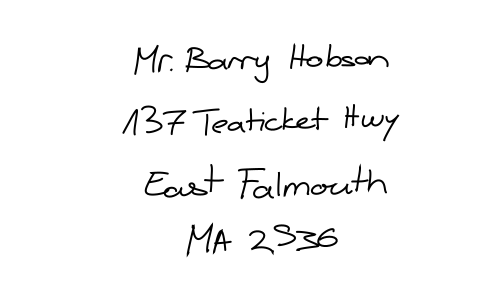 Mr. Barry Hobson
137 Teaticket Hwy
East Falmouth
MA 2536